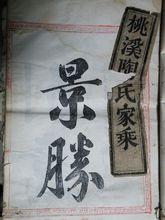 桃溪陶氏家乘
景勝